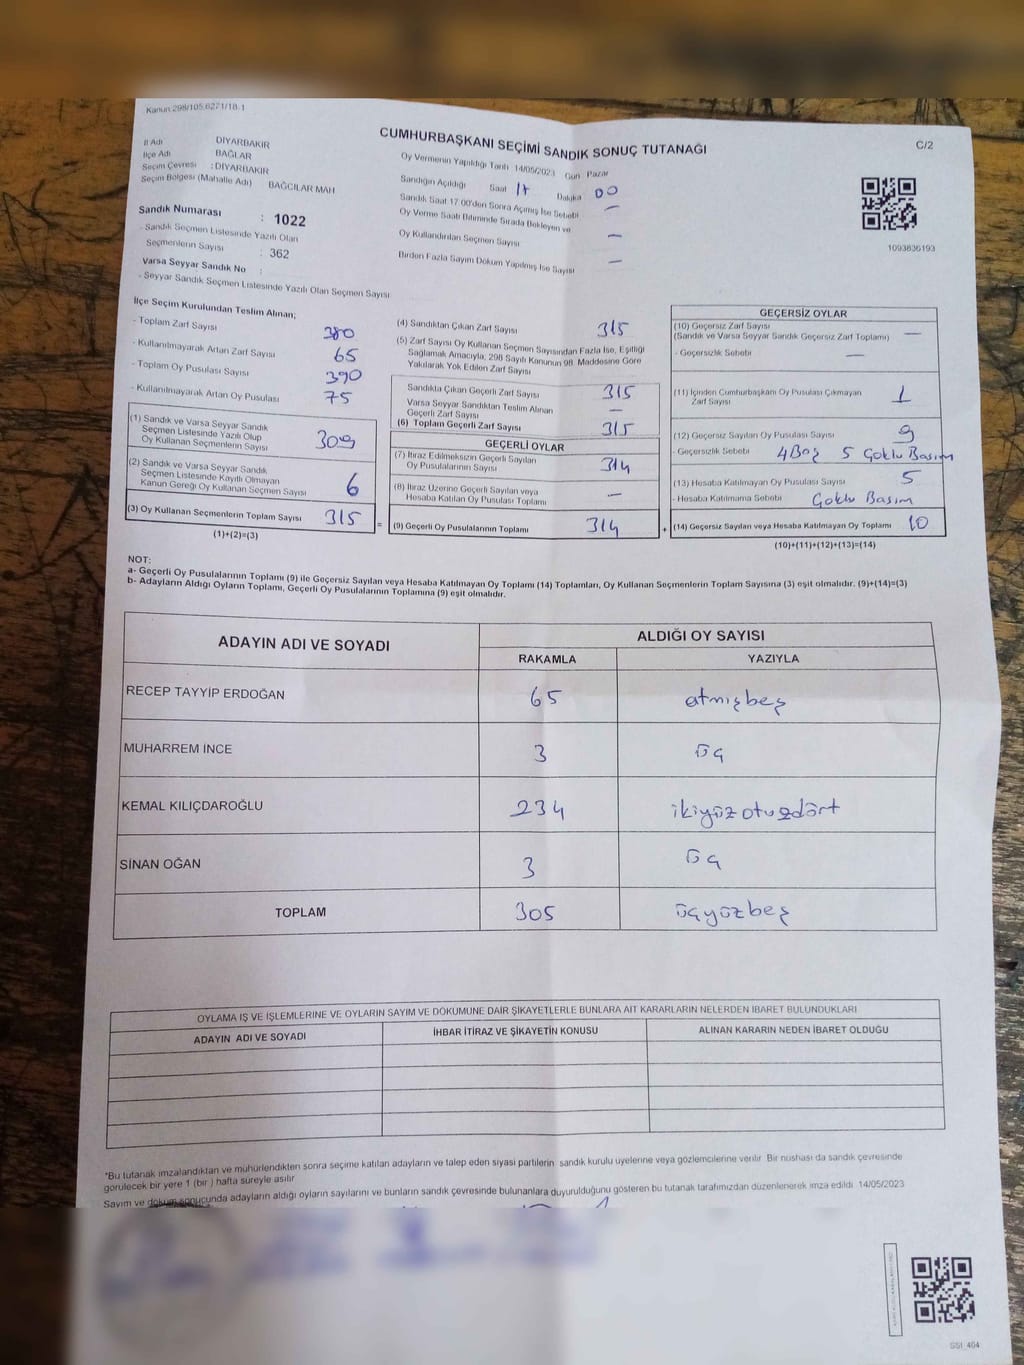 Kanun 298/105,6271/18-1
CUMHURBAŞKANI SEÇİMİ SANDIK SONUÇ TUTANAĞI
C/2
İl Adı DİYARBAKIR
İlçe Adı BAĞLAR
Seçim Çevresi : DİYARBAKIR
Seçim Bölgesi (Mahalle Adı) BAĞCILAR MAH
Sandık Numarası : 1022
- Sandık Seçmen Listesinde Yazılı Olan
Seçmenlerin Sayısı : 362
Varsa Seyyar Sandık No :
- Seyyar Sandık Seçmen Listesinde Yazılı Olan Seçmen Sayısı
Oy Vermenin Yapıldığı Tarih 14/05/2023 Gün Pazar
Sandığın Açıldığı Saat 17 Dakika 00
Sandık Saat 17:00'den Sonra Açılmış İse Sebebi —
Oy Verme Saati Bitiminde Sırada Bekleyen ve
Oy Kullandırılan Seçmen Sayısı —
Birden Fazla Sayım Döküm Yapılmış İse Sayısı —
1093836193
İlçe Seçim Kurulundan Teslim Alınan;
- Toplam Zarf Sayısı 380
- Kullanılmayarak Artan Zarf Sayısı 65
- Toplam Oy Pusulası Sayısı 390
- Kullanılmayarak Artan Oy Pusulası 75
(1) Sandık ve Varsa Seyyar Sandık
Seçmen Listesinde Yazılı Olup
Oy Kullanan Seçmenlerin Sayısı 309
(2) Sandık ve Varsa Seyyar Sandık
Seçmen Listesinde Kayıtlı Olmayan
Kanun Gereği Oy Kullanan Seçmen Sayısı 6
(3) Oy Kullanan Seçmenlerin Toplam Sayısı 315 =
(1)+(2)=(3)
(4) Sandıktan Çıkan Zarf Sayısı 315
(5) Zarf Sayısı Oy Kullanan Seçmen Sayısından Fazla İse, Eşitliği
Sağlamak Amacıyla, 298 Sayılı Kanunun 98. Maddesine Göre
Yakılarak Yok Edilen Zarf Sayısı
Sandıkta Çıkan Geçerli Zarf Sayısı 315
Varsa Seyyar Sandıktan Teslim Alınan
Geçerli Zarf Sayısı —
(6) Toplam Geçerli Zarf Sayısı 315
GEÇERLİ OYLAR
(7) İtiraz Edilmeksizin Geçerli Sayılan
Oy Pusulalarının Sayısı 314
(8) İtiraz Üzerine Geçerli Sayılan veya
Hesaba Katılan Oy Pusulası Toplamı —
(9) Geçerli Oy Pusulalarının Toplamı 314 +
GEÇERSİZ OYLAR
(10) Geçersiz Zarf Sayısı
(Sandık ve Varsa Seyyar Sandık Geçersiz Zarf Toplamı) —
- Geçersizlik Sebebi —
(11) İçinden Cumhurbaşkanı Oy Pusulası Çıkmayan
Zarf Sayısı 1
(12) Geçersiz Sayılan Oy Pusulası Sayısı 9
- Geçersizlik Sebebi 4 Boş 5 Çoklu Basım
(13) Hesaba Katılmayan Oy Pusulası Sayısı 5
- Hesaba Katılmama Sebebi Çoklu Basım
(14) Geçersiz Sayılan veya Hesaba Katılmayan Oy Toplamı 10
(10)+(11)+(12)+(13)=(14)
NOT:
a- Geçerli Oy Pusulalarının Toplamı (9) ile Geçersiz Sayılan veya Hesaba Katılmayan Oy Toplamı (14) Toplamları, Oy Kullanan Seçmenlerin Toplam Sayısına (3) eşit olmalıdır. (9)+(14)=(3)
b- Adayların Aldığı Oyların Toplamı, Geçerli Oy Pusulalarının Toplamına (9) eşit olmalıdır.
ADAYIN ADI VE SOYADI ALDIĞI OY SAYISI
RAKAMLA YAZIYLA
RECEP TAYYİP ERDOĞAN 65 atmışbeş
MUHARREM İNCE 3 üç
KEMAL KILIÇDAROĞLU 234 ikiyüzotuzdört
SİNAN OĞAN 3 üç
TOPLAM 305 üçyüzbeş
OYLAMA İŞ VE İŞLEMLERİNE VE OYLARIN SAYIM VE DÖKÜMÜNE DAİR ŞİKAYETLERLE BUNLARA AİT KARARLARIN NELERDEN İBARET BULUNDUKLARI
ADAYIN ADI VE SOYADI İHBAR İTİRAZ VE ŞİKAYETİN KONUSU ALINAN KARARIN NEDEN İBARET OLDUĞU
*Bu tutanak imzalandıktan ve mühürlendikten sonra seçime katılan adayların ve talep eden siyasi partilerin sandık kurulu üyelerine veya gözlemcilerine verilir. Bir nüshası da sandık çevresinde
görülecek bir yere 1 (bir) hafta süreyle asılır
Sayım ve döküm sonucunda adayların aldığı oyların sayılarını ve bunların sandık çevresinde bulunanlara duyurulduğunu gösteren bu tutanak tarafımızdan düzenlenerek imza edildi 14/05/2023
SSI_404